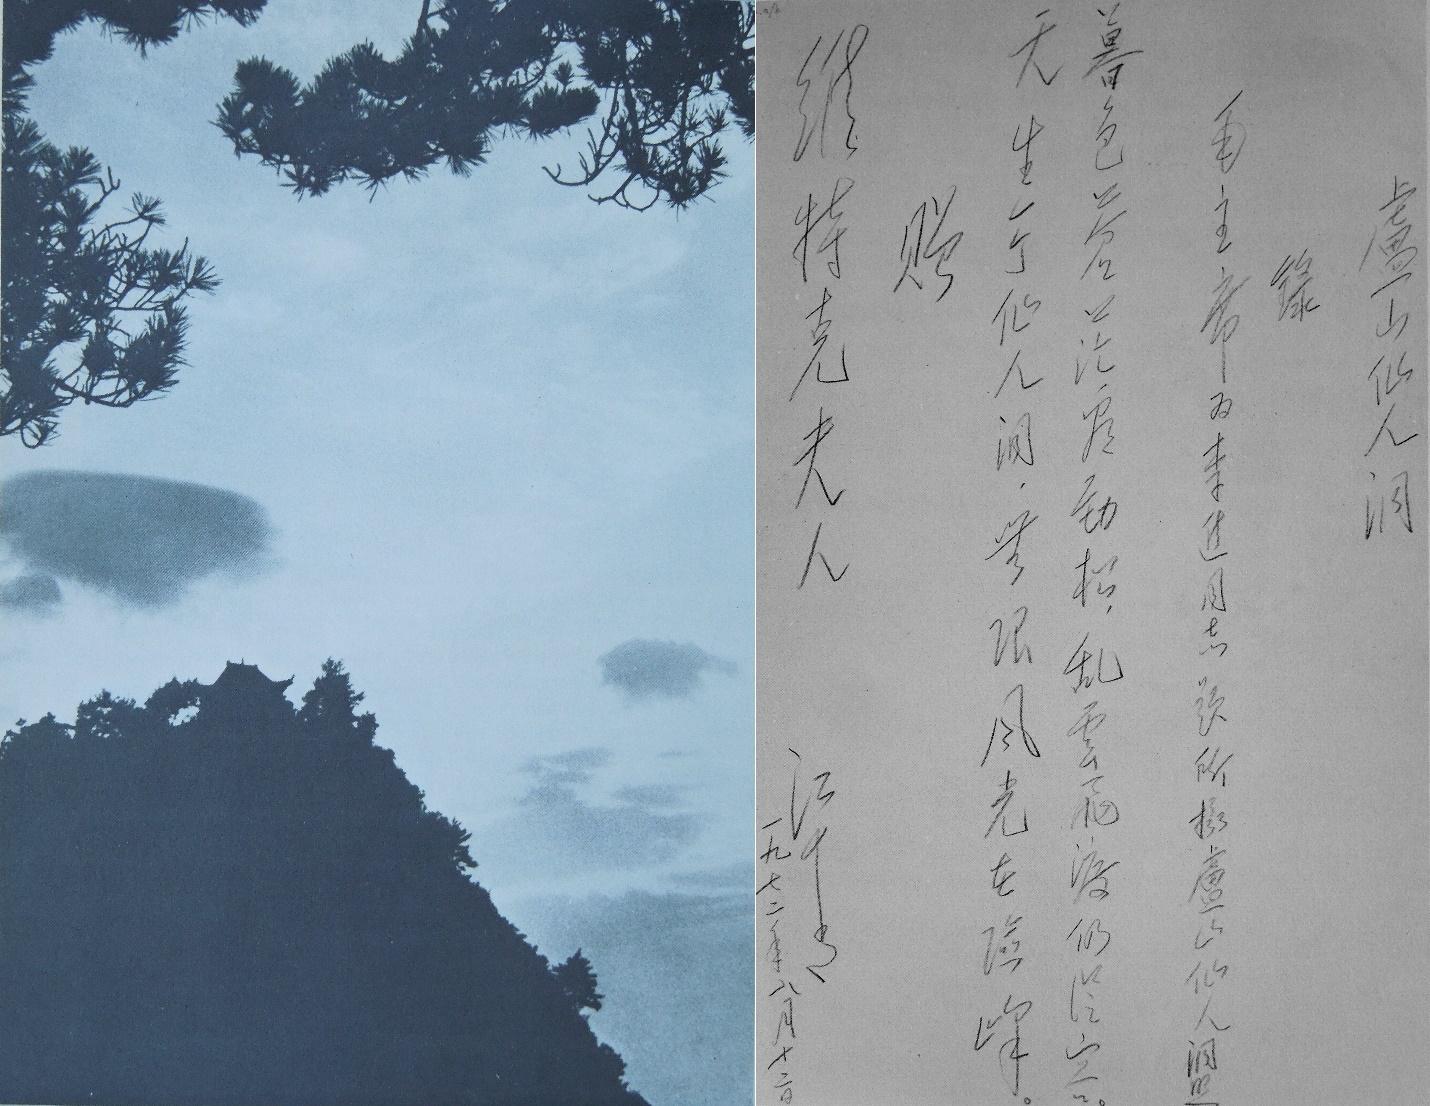 庐山仙人洞
錄
毛主席为李进同志题所摄庐山仙人洞照
暮色苍茫看劲松，乱雲飛渡仍从容。
天生一个仙人洞，無限风光在险峰。
赠
维特克夫人
江青
一九七二年八月十二日